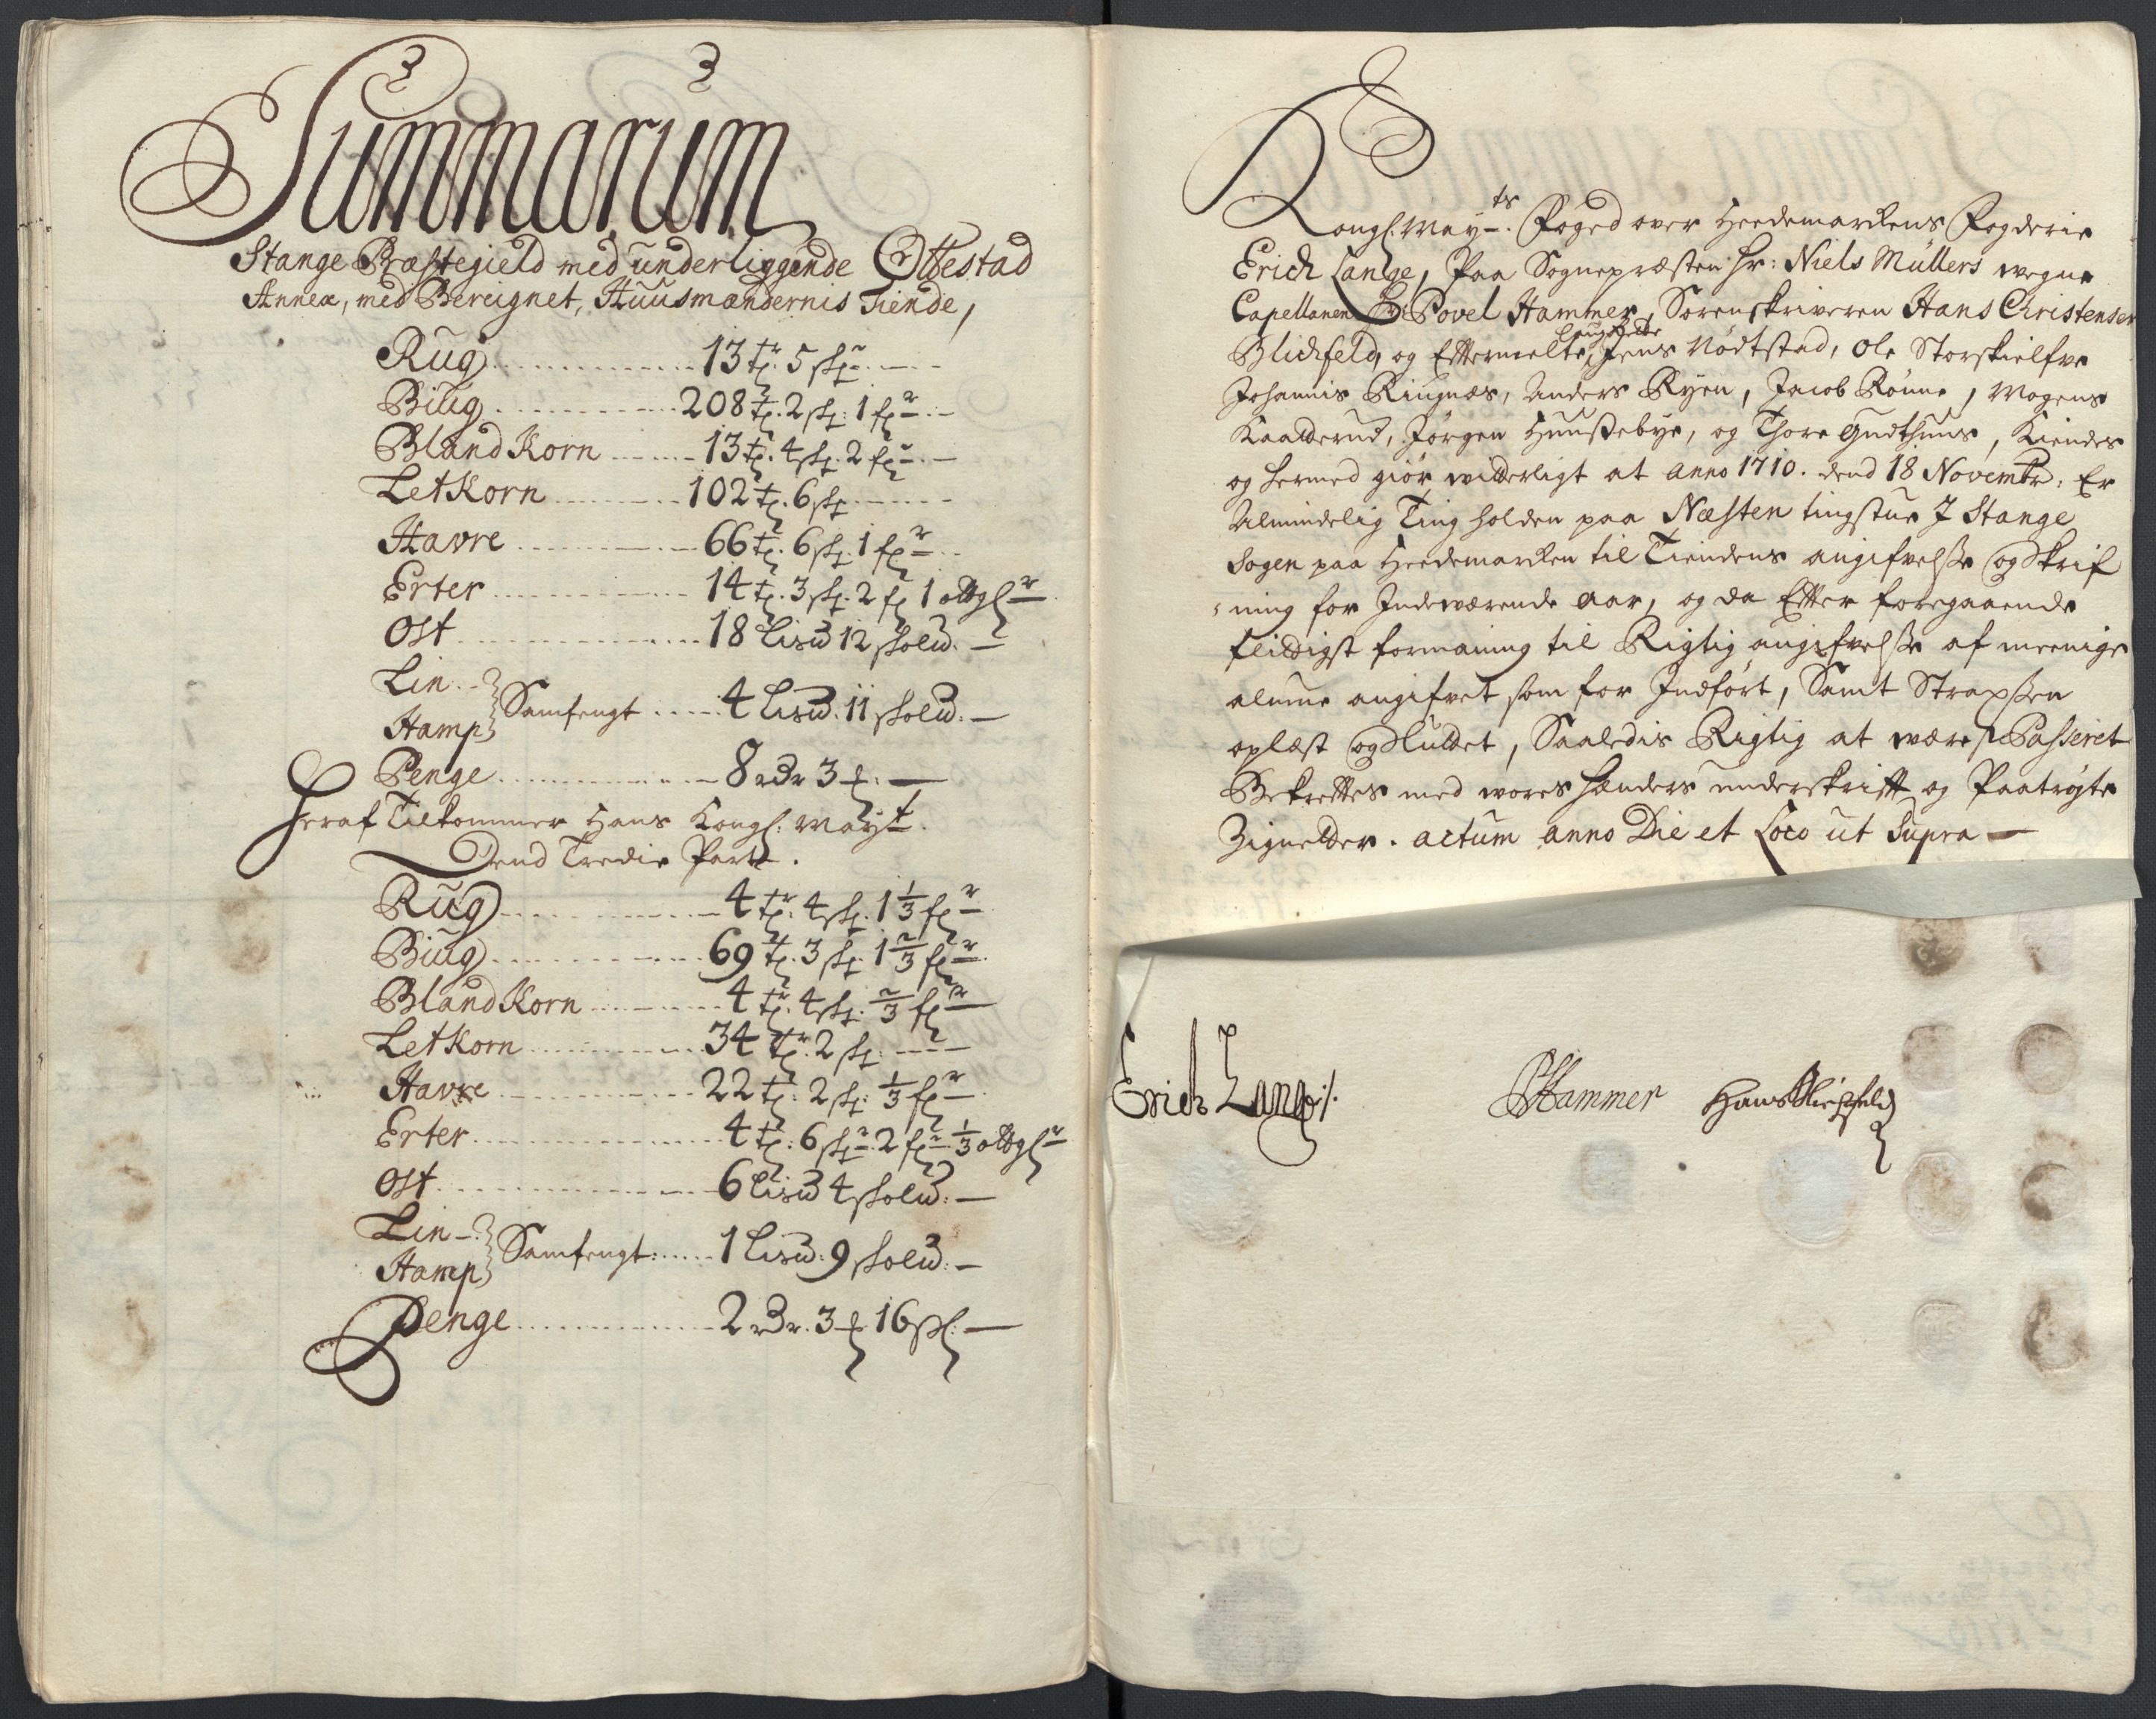 Summarum
Stange Præstegield med underliggende Ottestad
Annex, med Bereignet, Huusmændernis Tiende,
Rug 13 tr. 5 skp
Biug 208 tr. 2 skp. 1 fr
Bland Korn 13 tr. 4 skp. 2 fr
Let Korn 102 t. 6 skp
Havre 66 tr. 6 skp. 1 fr
Erter 14 t. 3 skp. 2 f 1 ottgr
Ost 18 Lis℔ 12 skol℔.
Lin
Hamp Samfengt 4 Lis℔. 11 skol℔.
Penge 8 rdr 3 ƒ.
Heraf Tilkommer Hans Kongl: Mayt.
Dend Tredie Part.
Rug 4 tr. 4 skp. 1 1/3 fr
Biug 69 tr. 3 skp. 1 2/3 fr
Bland Korn 4 tr. 4 skp. 2/3 fr
Let Korn 34 tr. 2 skp.
Havre 22 t. 2 skp. 1/3 fr
Erter 4 t. 6 skp 2 fr 1/3 ottgr
Ost 6 Lis℔ 4 skol℔.
Lin
Hamp Samfengt 1 Lis℔: 9 skol℔.
Penge 2 rdr. 3 ƒ 16 skl:
Kongl. Mayts. Foged over Heedemarkens Fogderie
Erich Lange, Paa Sognepræsten Hr: Niels Müllers wegne
Capellanen Hr: Povel Hammer, Sorenskriveren Hans Christensen
Blichfeld, og Eftermelte Laugrette Jens Nødtstad, Ole Storskielfve
Johannis Ringnæs, Anders Ryen, Jacob Rønne, Mogens
Kaatterud, Jørgen Huuszebye, og Thore Gudthuus, Kiendes
og hermed giør witterligt at anno 1710. dend 18 Novembr: Er
Almindelig Ting holden paa Næsten tingstue J Stange
Sogen paa Heedemarken til Tiendens angifvelsze og Skrif
ning for Indewærende Aar, og da Efter foregaaende
flittigst formaning til Rigtig angifvelsze af meenige
almue angifvet som for Indført, Samt Straxszen
oplæst og Sluttet, Saaledis Rigtig at være Passeret
Bekreftes med wores hænders underskrift og Paatrøgte
Zigneter. actum anno Die et Loco ut Supra
Erich Lange
PHammer
Hans Blichfeld